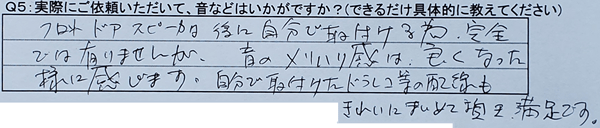 Q5:実際にご依頼いただいて、音などはいかがですか？(できるだけ具体的に教えてください)
フロントドアスピーカは後に自分で取付ける為、完全
では有りませんが、音のメリハリ感は、良くなった
様に感じます。自分で取付けたドラレコ等の配線も
きれいにまとめて頂き満足です。